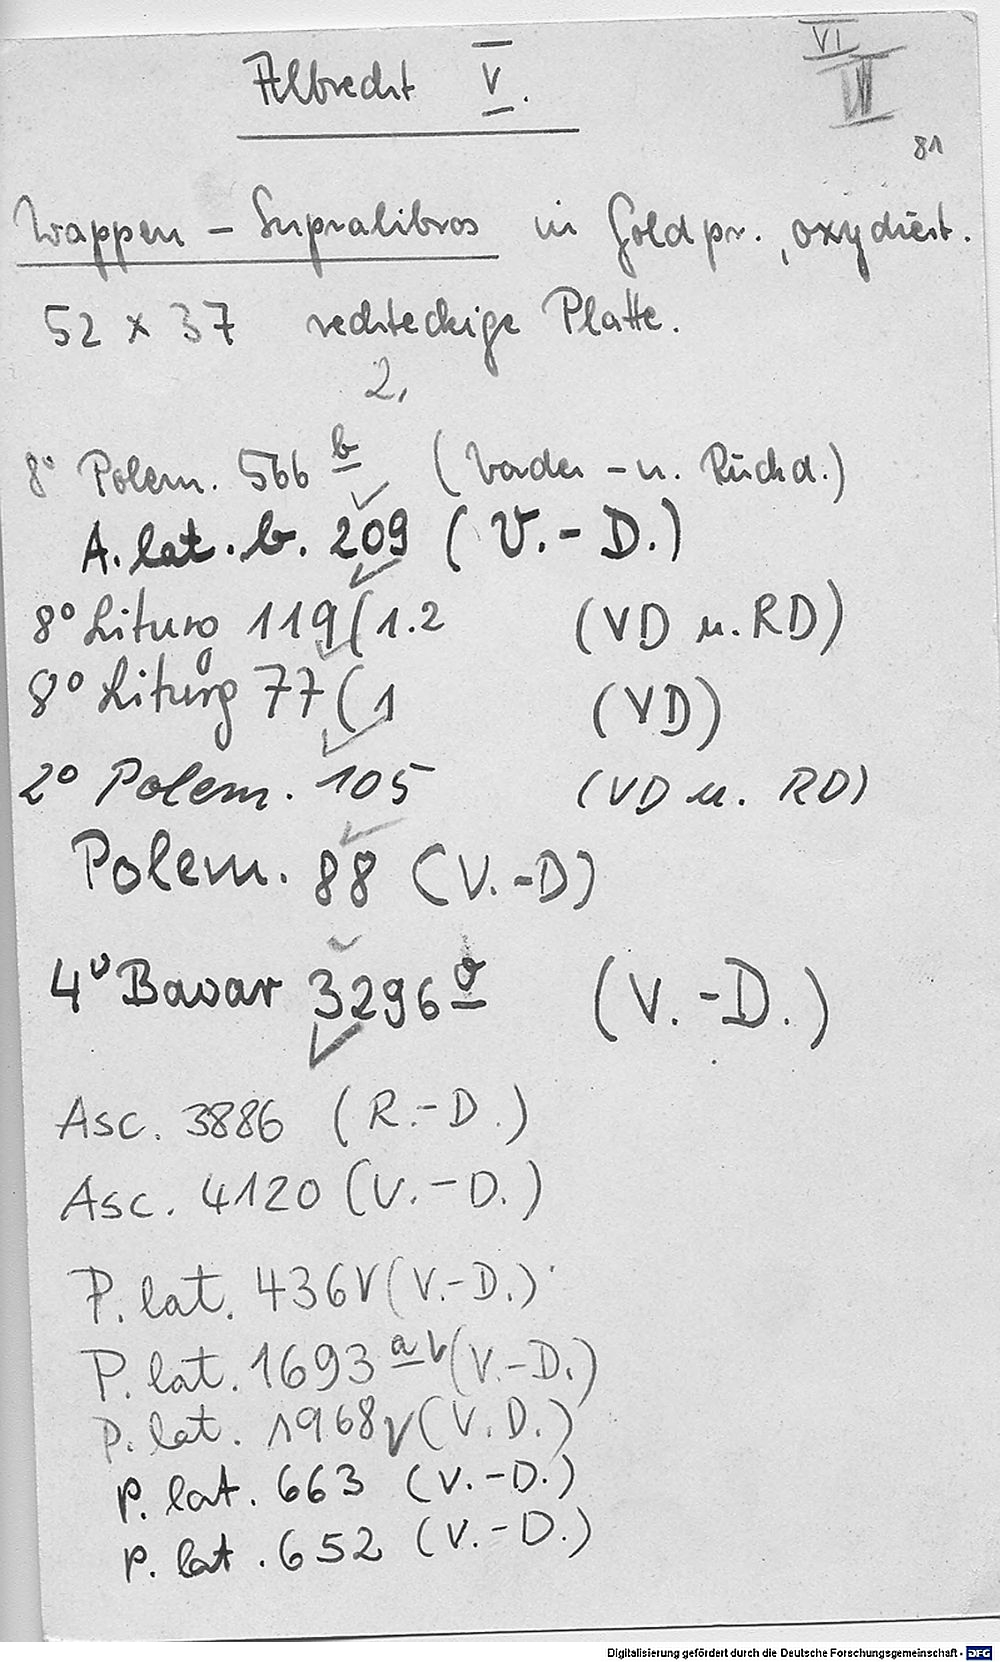 VI
VII
Albrecht V.
81
Wappen - Supralibros in Goldpr., oxydiert.
52 x 37 rechteckige Platte.
2,
8° Polem. 566 b (Vorder - u. Rückd.)
A. lat. b. 209 (V.-D.)
8° Liturg 119(1.2 (VD u. RD)
8° Liturg 77(1 (VD)
2° Polem. 105 (VD u. RD)
Polem. 88 (V.-D)
4° Bavar 3296 (V.-D.)
Asc. 3886 (R.-D.)
Asc. 4120 (V.-D.)
P. lat. 436 (V.-D.)
P. lat. 1693 a (V.-D.)
P. lat. 1968 (V.D.)
P. lat. 663 (V.-D.)
P. lat. 652 (V.-D.)
Digitalisierung gefördert durch die Deutsche Forschungsgemeinschaft - DFG